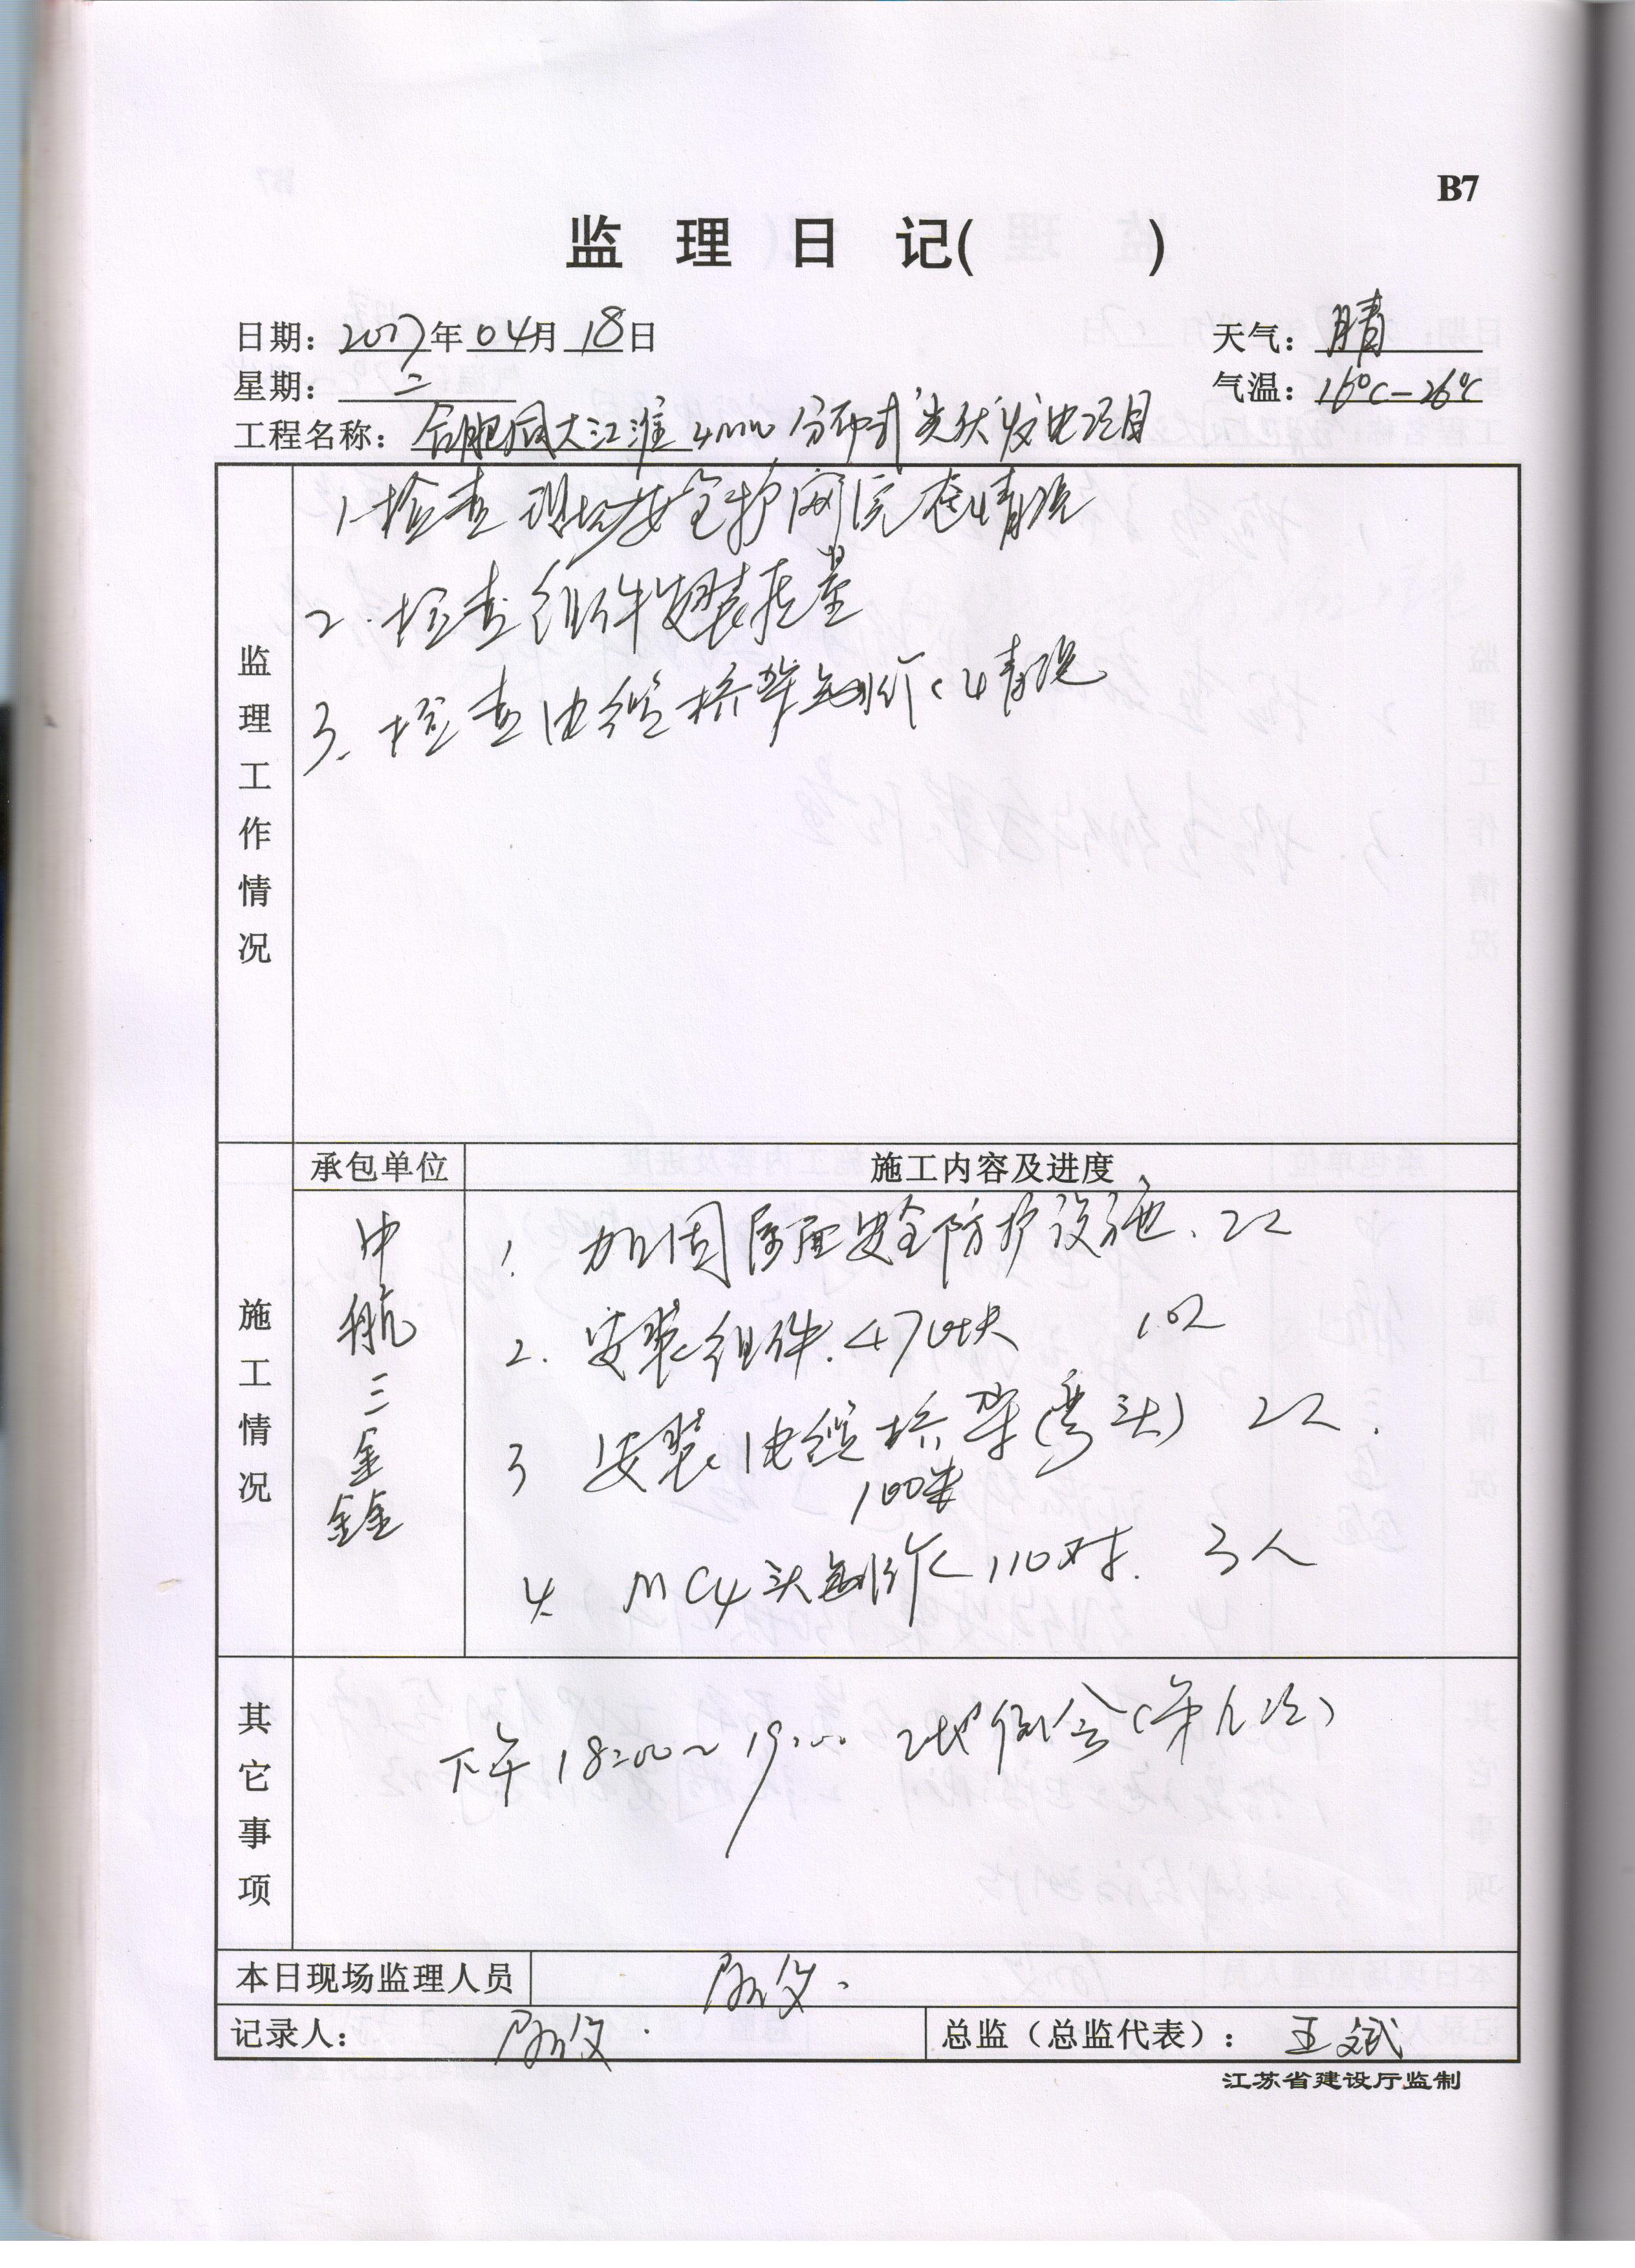 B7
监理日记( )
日期：2017年04月18日 天气：晴
星期：二 气温：16℃-26℃
工程名称：合肥同大江淮4MW分布式光伏发电项目
监理工作情况
1.检查现场安全护网完善情况
2.检查组件安装质量
3.检查电缆桥架制作情况
承包单位 施工内容及进度
施工情况
中航三鑫
1. 加固屋面安全防护设施、2人
2. 安装组件.470块 10人
3 安装电缆桥架(弯头) 2人.
100米
4. MC4头制作110对. 3人
其它事项
下午18:00~19:00 工地例会(第九次)
本日现场监理人员
记录人：
总监（总监代表）：王斌
江苏省建设厅监制